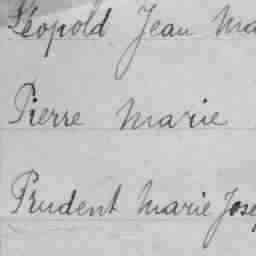 Léopold Jean Ma
Pierre Marie
Prudent Marie Jose